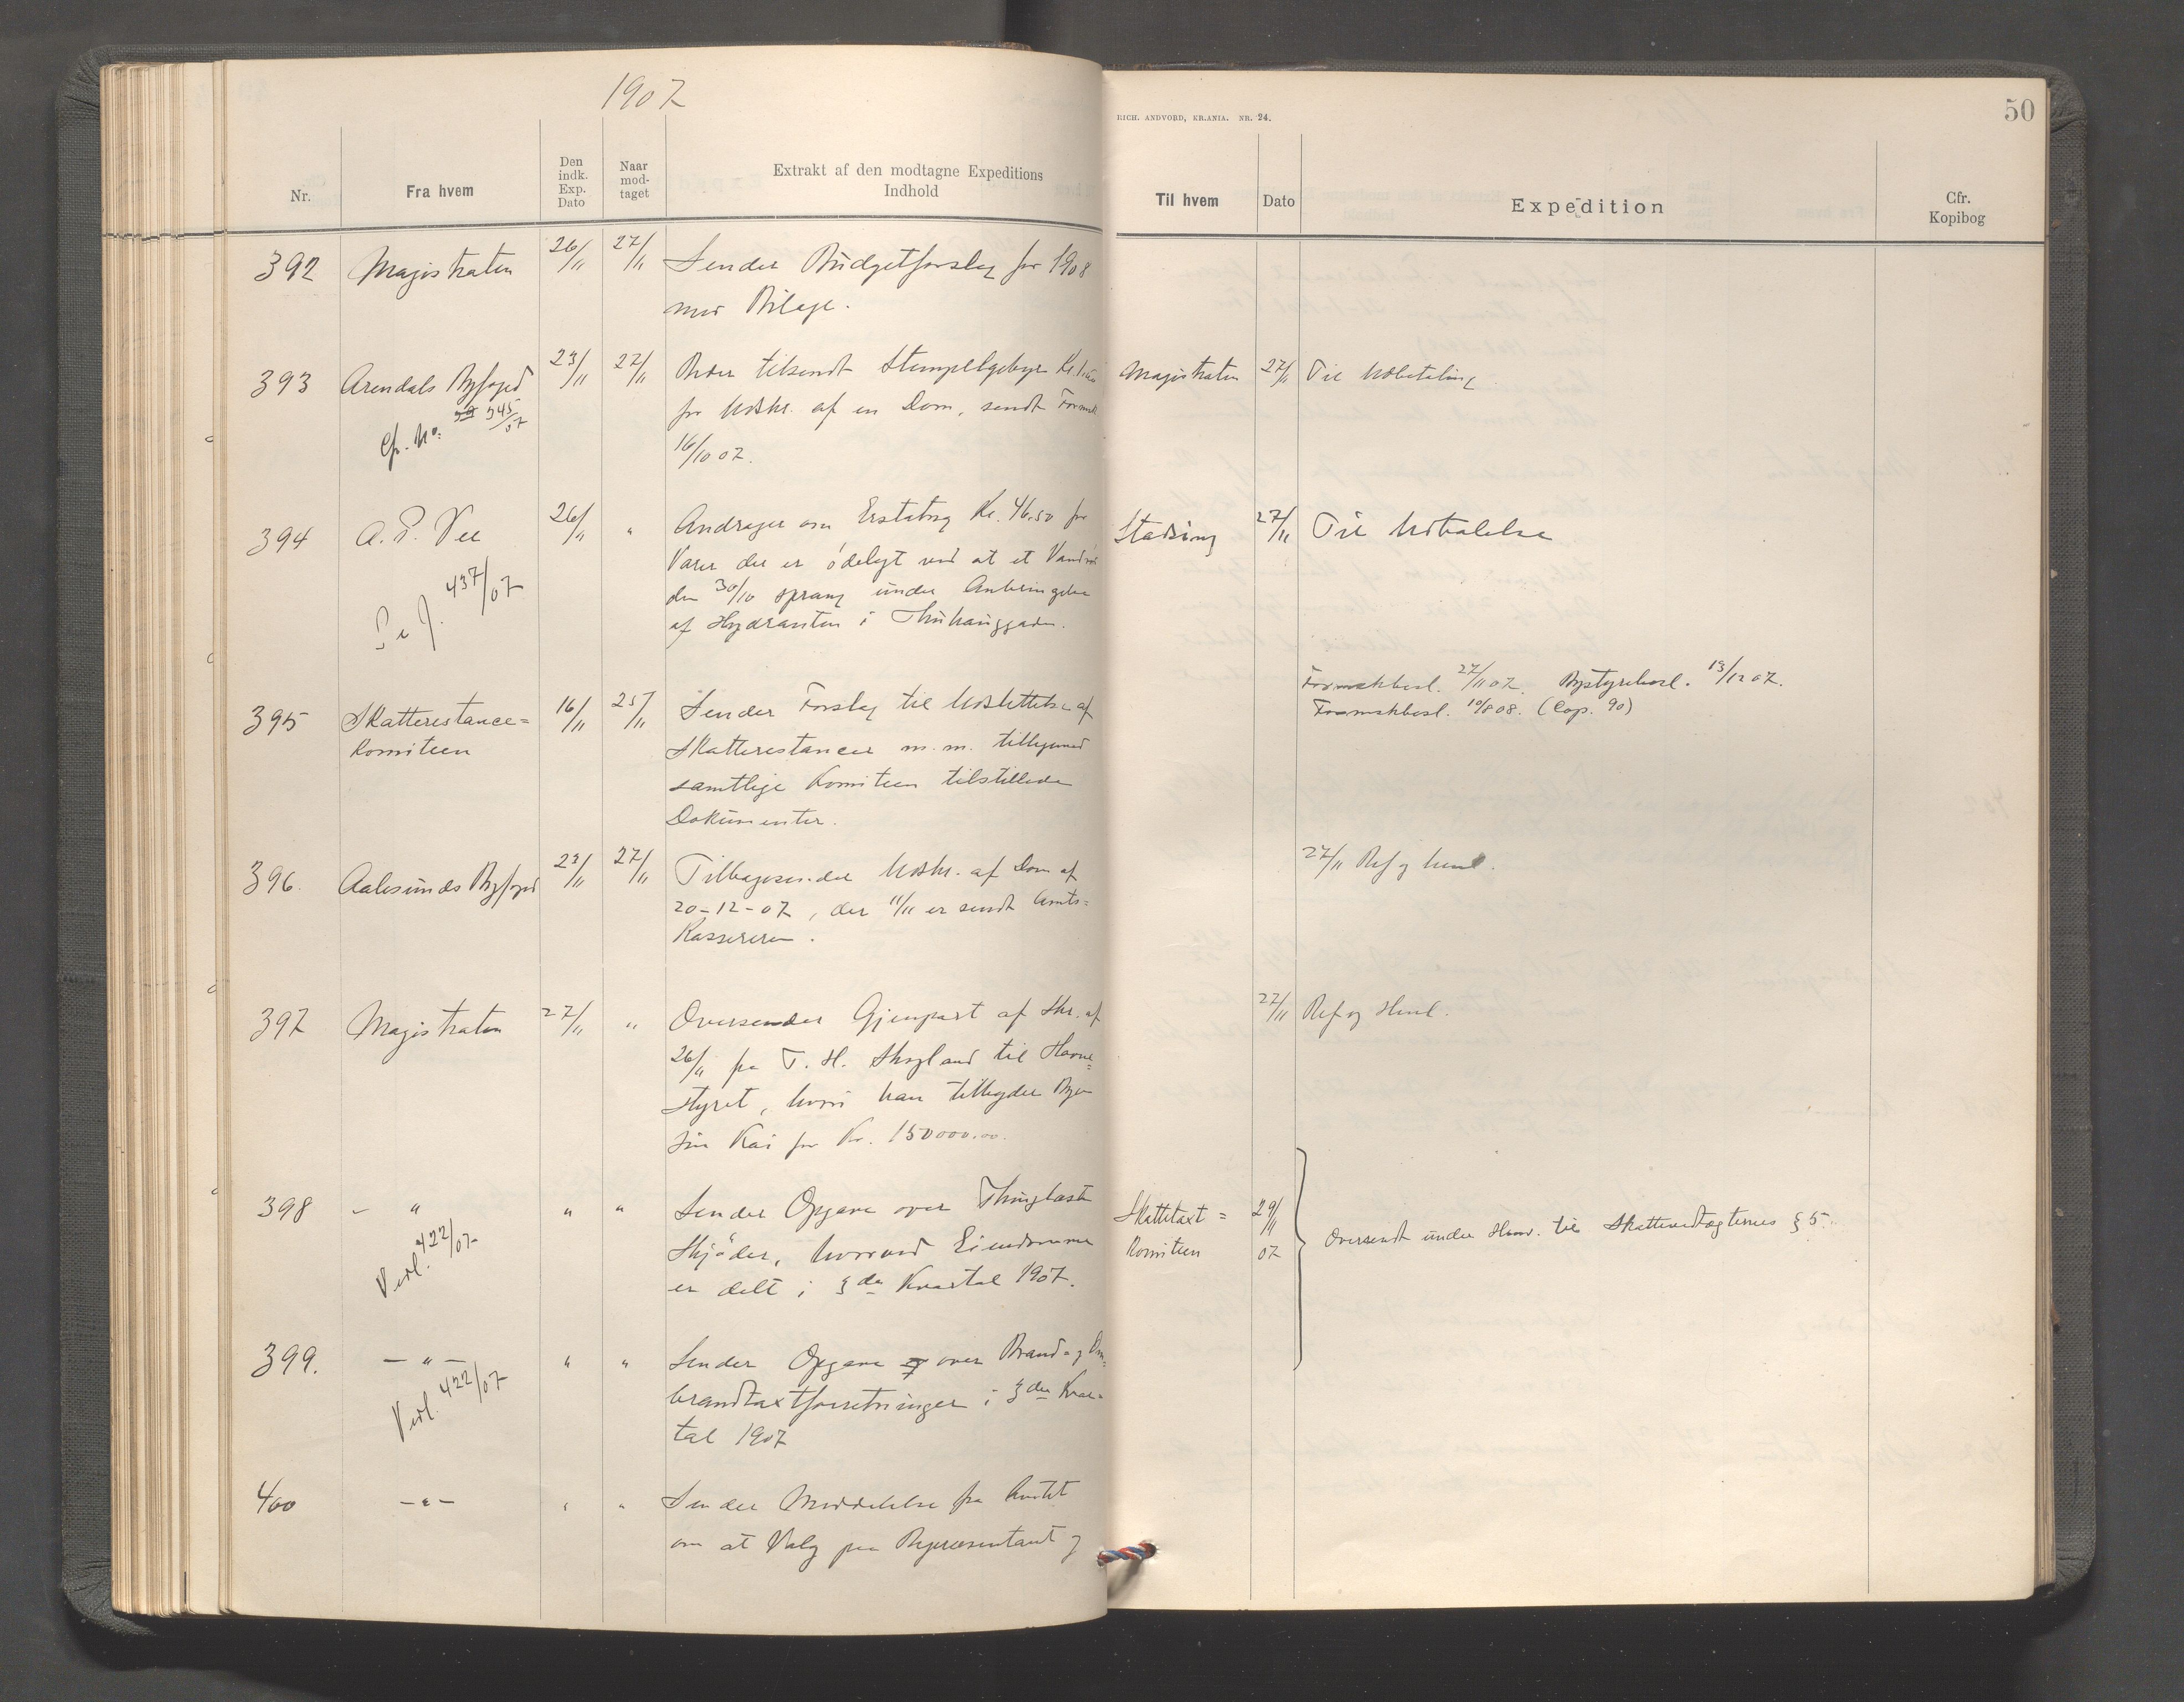 1907
RICH. ANDVORD, KR.ANIA. NR. 24.
50
Nr.
Fra hvem
Den indk. Exp. Dato
Naar mod-taget
Extrakt af den modtagne Expeditions Indhold
Til hvem
Dato
Expedition
Cfr. Kopibog
392 Magistraten 26/11 27/11 Sender Budgetforslag for 1908
med Bilage.
393 Arendals Byfoged 23/11 27/11 Beder tilsendt Stempelgebyr Kr.
Magistraten 27/11 Til Udbetaling
Cfr. No. 345/07
for Udskr. af en Dom, sendt Formsk
16/10 07.
394 A. P. Vee 26/11 " Andrager om Erstatning Kr. 46.50 for
Stadsing 27/11 Til Udtalelse
Varer der er ødelagt ved at et Vandrør
Se J. 437/07
den 30/10 sprang under Anbringelse
af Hydranten i Thuhauggaden.
395 Skatterestance=
Komiteen 16/11 25/11 Sender Forslag til Udslettelse af
Skatterestancer m.m. tilligemed
samtlige Komiteen tilstillede
Dokumenter.
Formskbesl. 27/11 07. Bystyrebesl. 13/12 07.
Formskbesl. 10/8 08. (Cop. 90)
396. Aalesunds Byfoged 23/11 27/11 Tilbagesender Udskr. af Dom af
20-12-07, der 11/11 er sendt Amts=
Kassereren.
27/11 Ref og henl.
397 Magistraten 27/11 " Oversender Gjenpart af Skr. af
26/11 fra T. H. Skogland til Havne=
styret, hvori han tilbyder Byen
sin Kai for Kr. 150000.00.
27/11 Ref og Henl.
398 - " " " Sender Opgave over Thinglæste
Verl. 422/07
Skjøder, hvorved Eiendomme
er delt i 3die Kvartal 1907.
Skattetaxt=
Komiteen 29/11 07
Oversendt under Henv. til Skattevedtægternes § 5.
399. - " - " " Sender Opgave over Brand- og Om=
Verl. 422/07
brandtaxtforretninger i 3die Kvar=
tal 1907
400 - " - " " Sender Meddelelse fra Amtet
om at Valg paa Repræsentant og